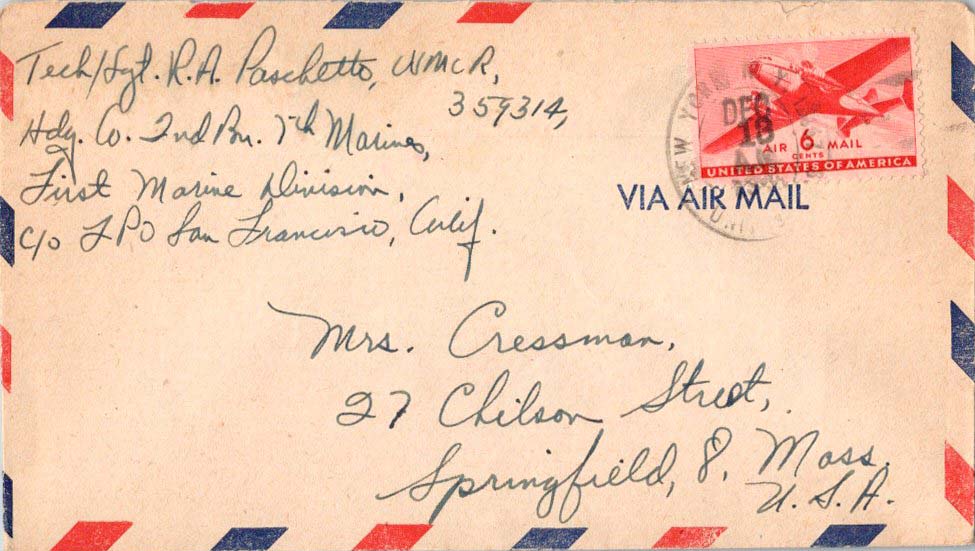 Tech/Sgt. R.A. Paschetto, WMCR,
359314,
Hdq. Co. 2nd Bn. 7th Marines,
First Marine Division,
c/o FPO San Francisco, Calif.
NEW YORK, N.Y.
DEC
18
AIR 6 MAIL
CENTS
UNITED STATES OF AMERICA
VIA AIR MAIL
Mrs. Cressman,
27 Chilson Street,
Springfield, 8, Mass.
U.S.A.